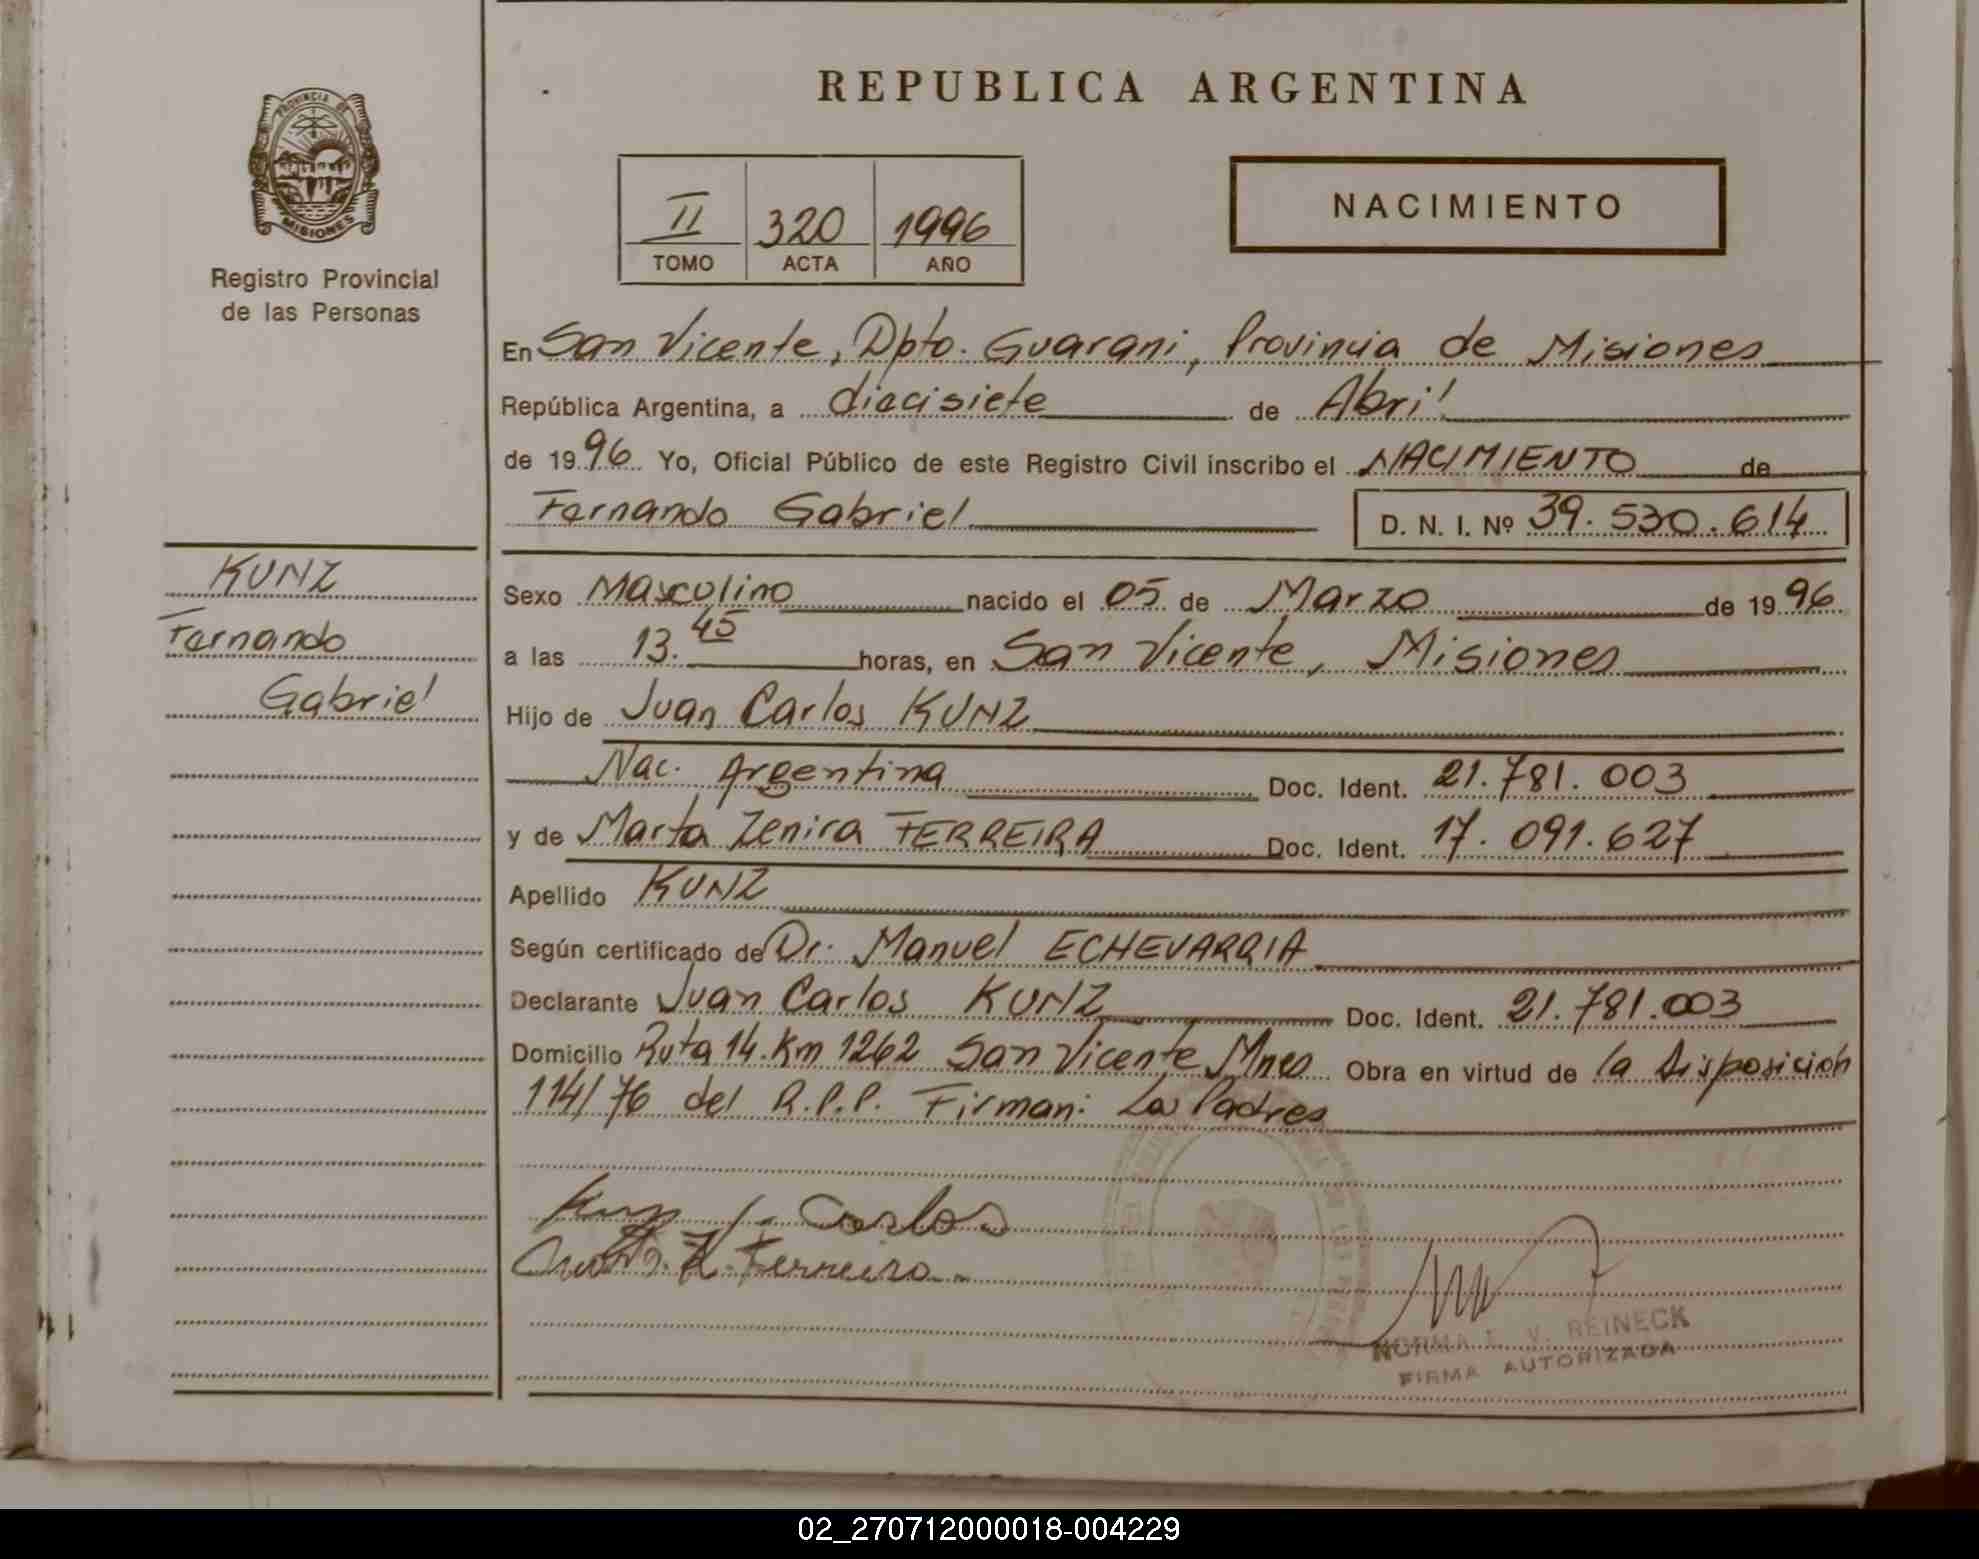 REPUBLICA ARGENTINA
PROVINCIA DE
MISIONES
Registro Provincial
de las Personas
II 320 1996
TOMO ACTA AÑO
NACIMIENTO
En San Vicente, Dpto. Guarani, Provincia de Misiones
República Argentina, a diecisiete de Abril
de 1996 Yo, Oficial Público de este Registro Civil inscribo el NACIMIENTO de
Fernando Gabriel D. N. I. Nº 39.530.614
KUNZ
Fernando
Gabriel
Sexo Masculino nacido el 05 de Marzo de 1996
a las 13.45 horas, en San Vicente, Misiones
Hijo de Juan Carlos KUNZ
Nac. Argentina Doc. Ident. 21.781.003
y de Marta Zenira FERREIRA Doc. Ident. 17.091.627
Apellido KUNZ
Según certificado de Dr. Manuel ECHEVARRIA
Declarante Juan Carlos KUNZ Doc. Ident. 21.781.003
Domicilio Ruta 14. Km 1262 San Vicente Mnes Obra en virtud de la Disposición
114/76 del R.P.P. Firman: Los Padres
Carlos
Z. Ferreira
NORMA E. V. REINECK
FIRMA AUTORIZADA
02_270712000018-004229